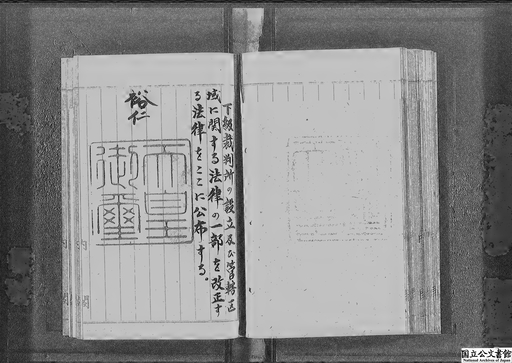 下級裁判所の設立及び管轄区
域に関する法律の一部を改正す
る法律をここに公布する。
裕仁
天皇
御璽
国立公文書館
National Archives of Japan